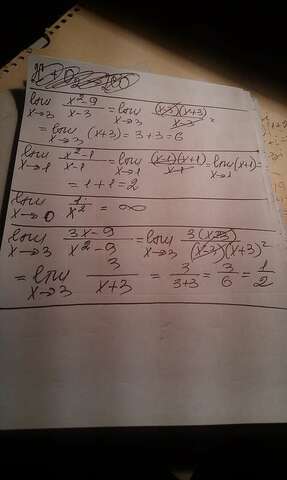 lim x→3 x²-9 / x-3 = lim x→3 (x-3)(x+3) / x-3 =
= lim x→3 (x+3) = 3+3 = 6
lim x→1 x²-1 / x-1 = lim x→1 (x-1)(x+1) / x-1 = lim x→1 (x+1) =
= 1+1 = 2
lim x→0 1 / x² = ∞
lim x→3 3x-9 / x²-9 = lim x→3 3(x-3) / (x-3)(x+3) =
= lim x→3 3 / x+3 = 3 / 3+3 = 3 / 6 = 1 / 2